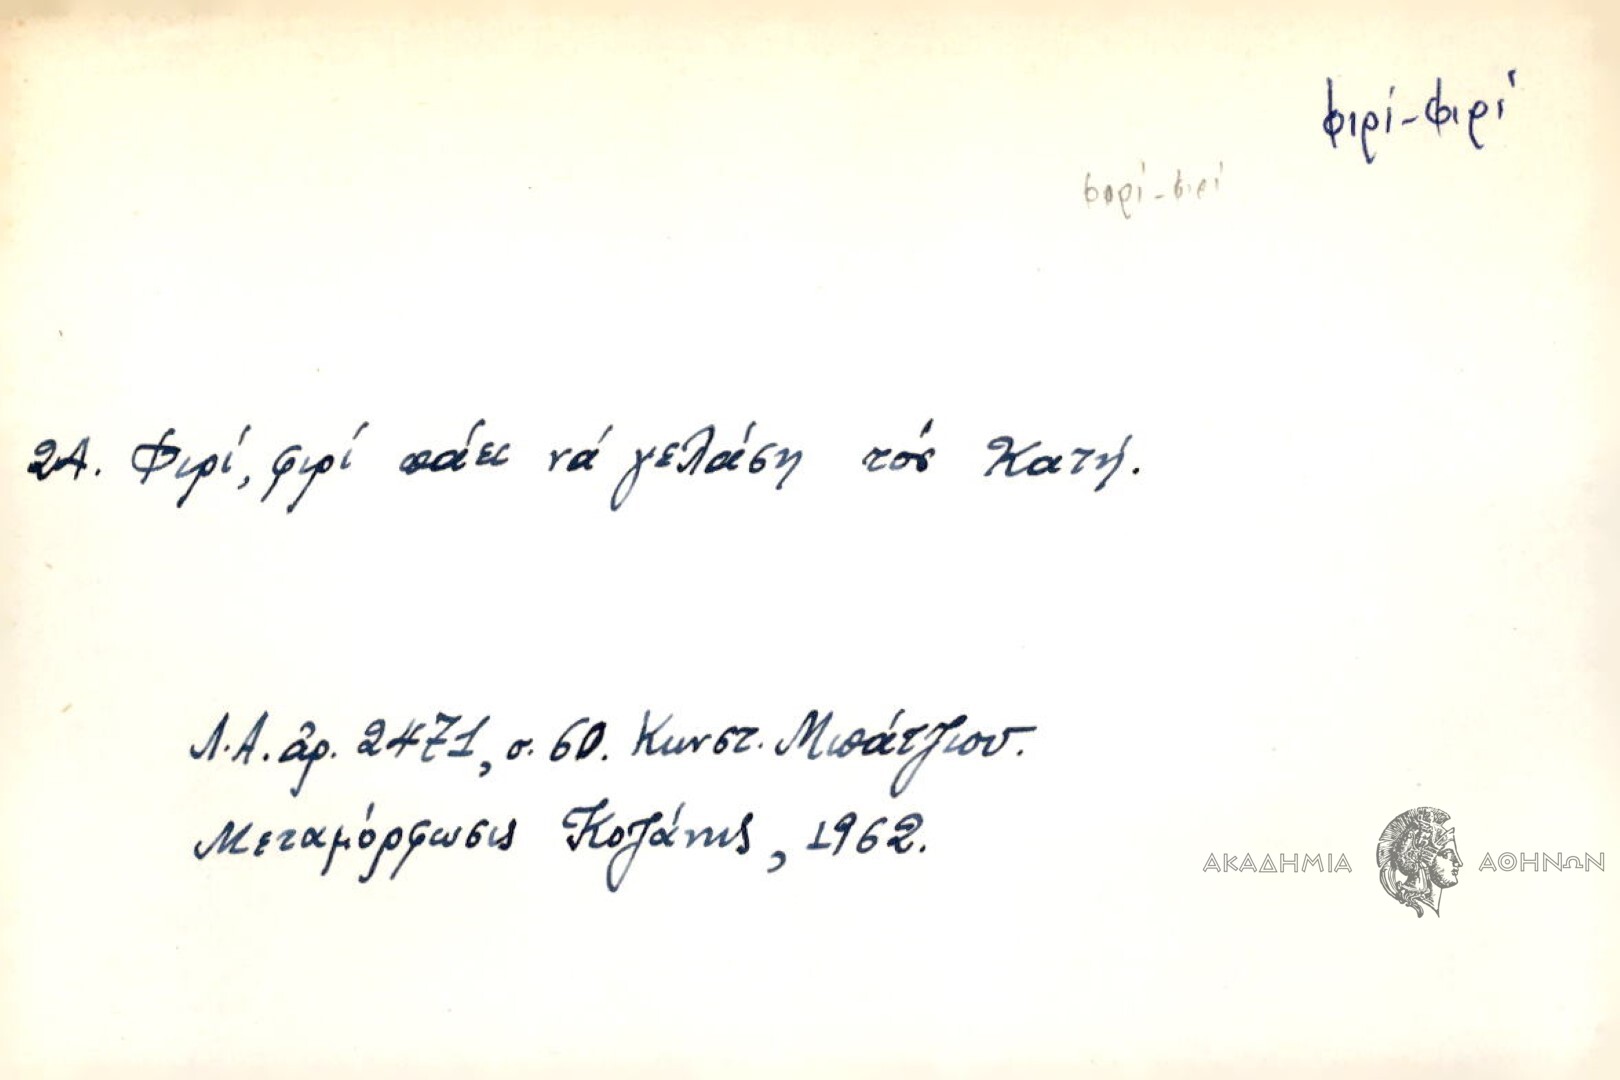 φιρί-φιρί
φιρί-φιρί
24. Φιρί, φιρί πάει νά γελάση τόν Κατή.
Λ.Α. ἀρ. 2471, σ. 60. Κωνστ. Μπάτζιου.
Μεταμόρφωσις Κοζάνης, 1962.
ΑΚΑΔΗΜΙΑ ΑΘΗΝΩΝ